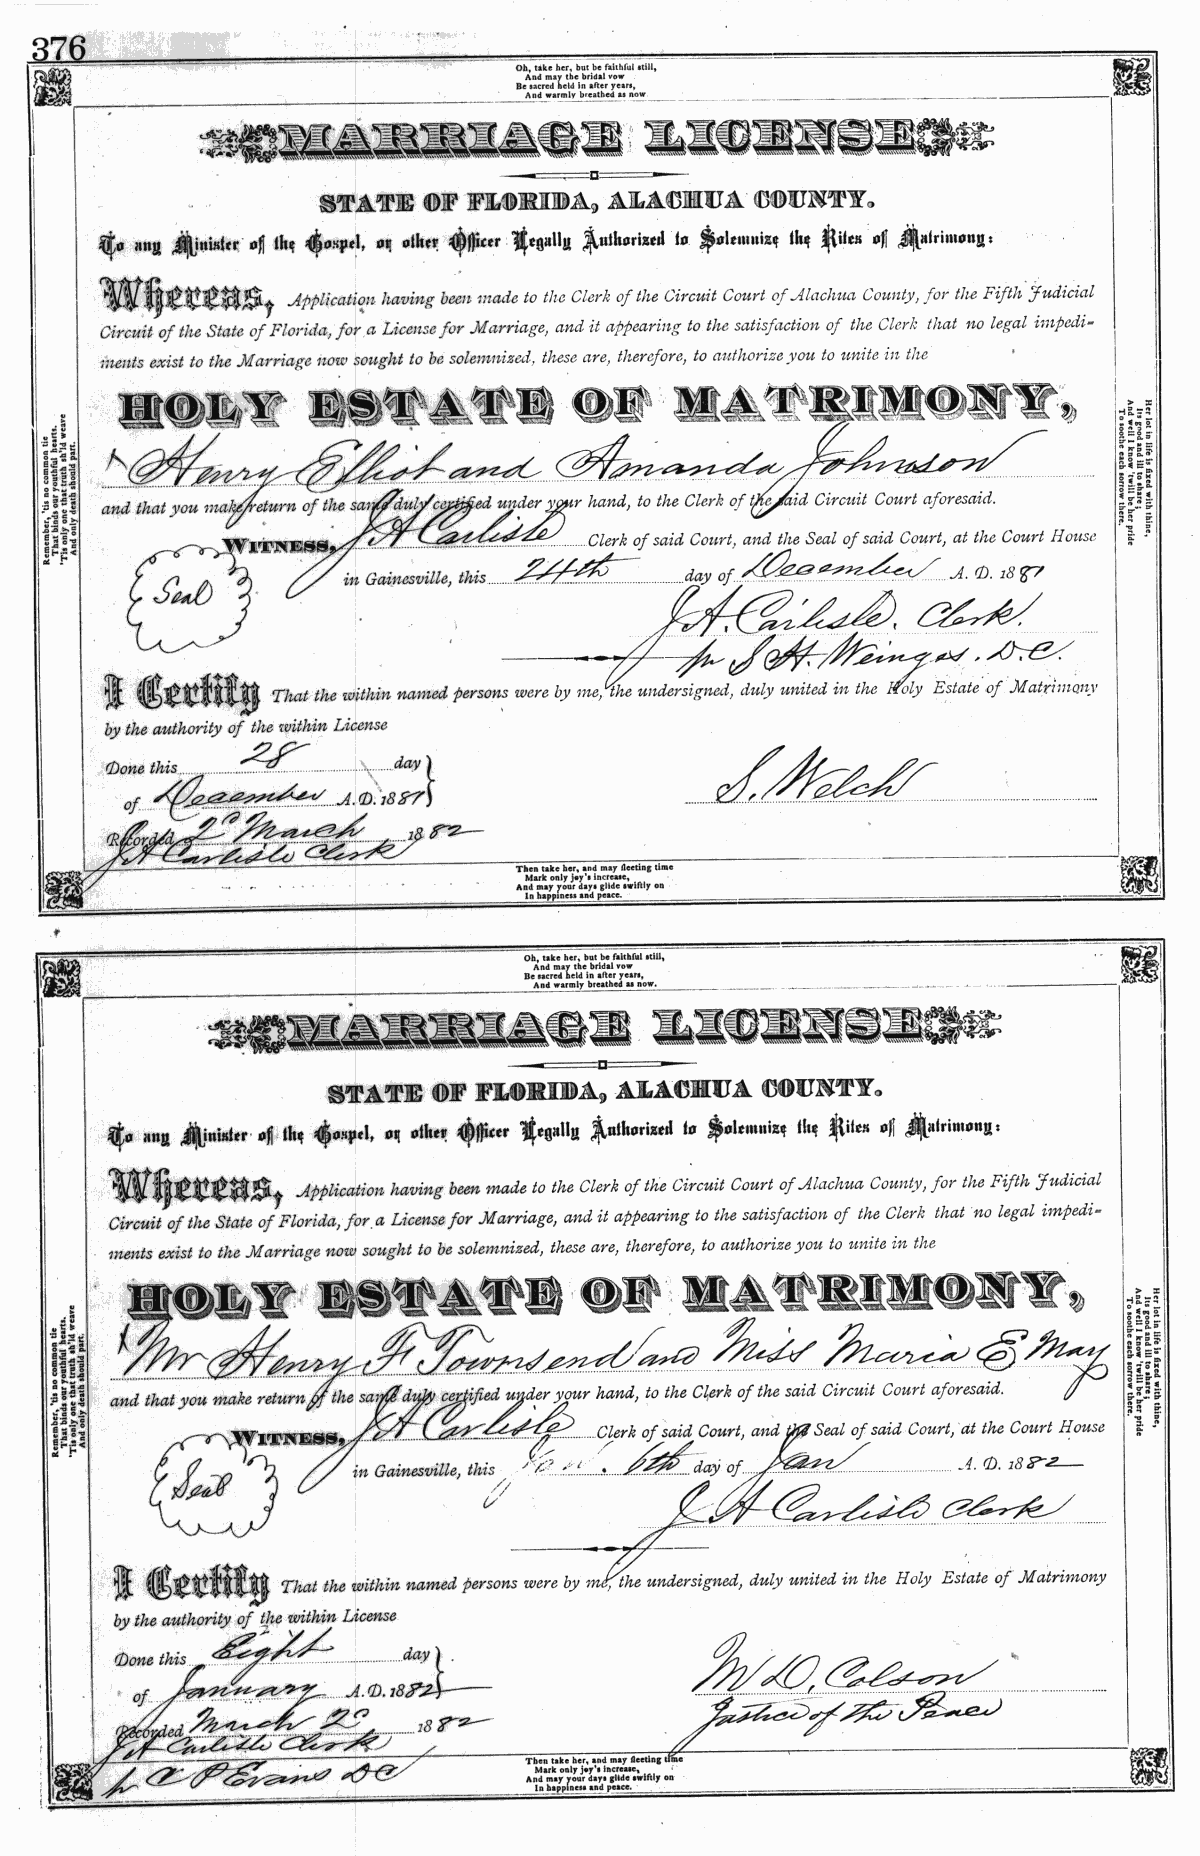 376
Oh, take her, but be faithful still,
And may the bridal vow
Be sacred held in after years,
And warmly breathed as now
MARRIAGE LICENSE
STATE OF FLORIDA, ALACHUA COUNTY.
To any Minister of the Gospel, or other Officer Legally Authorized to Solemnize the Rites of Matrimony:
Whereas, Application having been made to the Clerk of the Circuit Court of Alachua County, for the Fifth Judicial
Circuit of the State of Florida, for a License for Marriage, and it appearing to the satisfaction of the Clerk that no legal impedi-
ments exist to the Marriage now sought to be solemnized, these are, therefore, to authorize you to unite in the
HOLY ESTATE OF MATRIMONY,
Henry Elliot and Amanda Johnson
and that you make return of the same duly certified under your hand, to the Clerk of the said Circuit Court aforesaid.
WITNESS, J A Carlisle Clerk of said Court, and the Seal of said Court, at the Court House
Seal
in Gainesville, this 24th day of December A. D. 1881
J. A. Carlisle. Clerk.
pr S H. Weinges. D.C.
I Certify That the within named persons were by me, the undersigned, duly united in the Holy Estate of Matrimony
by the authority of the within License
Done this 28 day
of December A.D. 1881
S. Welch
Recorded 2d March 1882
J A Carlisle Clerk
Remember, 'tis no common tie
That binds our youthful hearts.
'Tis only one that truth sh'ld weave
And only death should part.
Her lot in life is fixed with thine,
Its good and ill to share;
And well I know 'twill be her pride
To soothe each sorrow there.
Then take her, and may fleeting time
Mark only joy's increase,
And may your days glide swiftly on
In happiness and peace.
Oh, take her, but be faithful still,
And may the bridal vow
Be sacred held in after years,
And warmly breathed as now.
MARRIAGE LICENSE
STATE OF FLORIDA, ALACHUA COUNTY.
To any Minister of the Gospel, or other Officer Legally Authorized to Solemnize the Rites of Matrimony:
Whereas, Application having been made to the Clerk of the Circuit Court of Alachua County, for the Fifth Judicial
Circuit of the State of Florida, for a License for Marriage, and it appearing to the satisfaction of the Clerk that no legal impedi-
ments exist to the Marriage now sought to be solemnized, these are, therefore, to authorize you to unite in the
HOLY ESTATE OF MATRIMONY,
Mr Henry F Townsend and Miss Maria E May
and that you make return of the same duly certified under your hand, to the Clerk of the said Circuit Court aforesaid.
WITNESS, J A Carlisle Clerk of said Court, and the Seal of said Court, at the Court House
Seal
in Gainesville, this Jan. 6th day of Jan A. D. 1882
J A Carlisle Clerk
I Certify That the within named persons were by me, the undersigned, duly united in the Holy Estate of Matrimony
by the authority of the within License
Done this Eight day
of January A.D. 1882
M D. Colson
Justice of the Peace
Recorded March 2d 1882
J A Carlisle Clerk
pr C P Evans DC
Remember, 'tis no common tie
That binds our youthful hearts.
'Tis only one that truth sh'ld weave
And only death should part.
Her lot in life is fixed with thine,
Its good and ill to share;
And well I know 'twill be her pride
To soothe each sorrow there.
Then take her, and may fleeting time
Mark only joy's increase,
And may your days glide swiftly on
In happiness and peace.